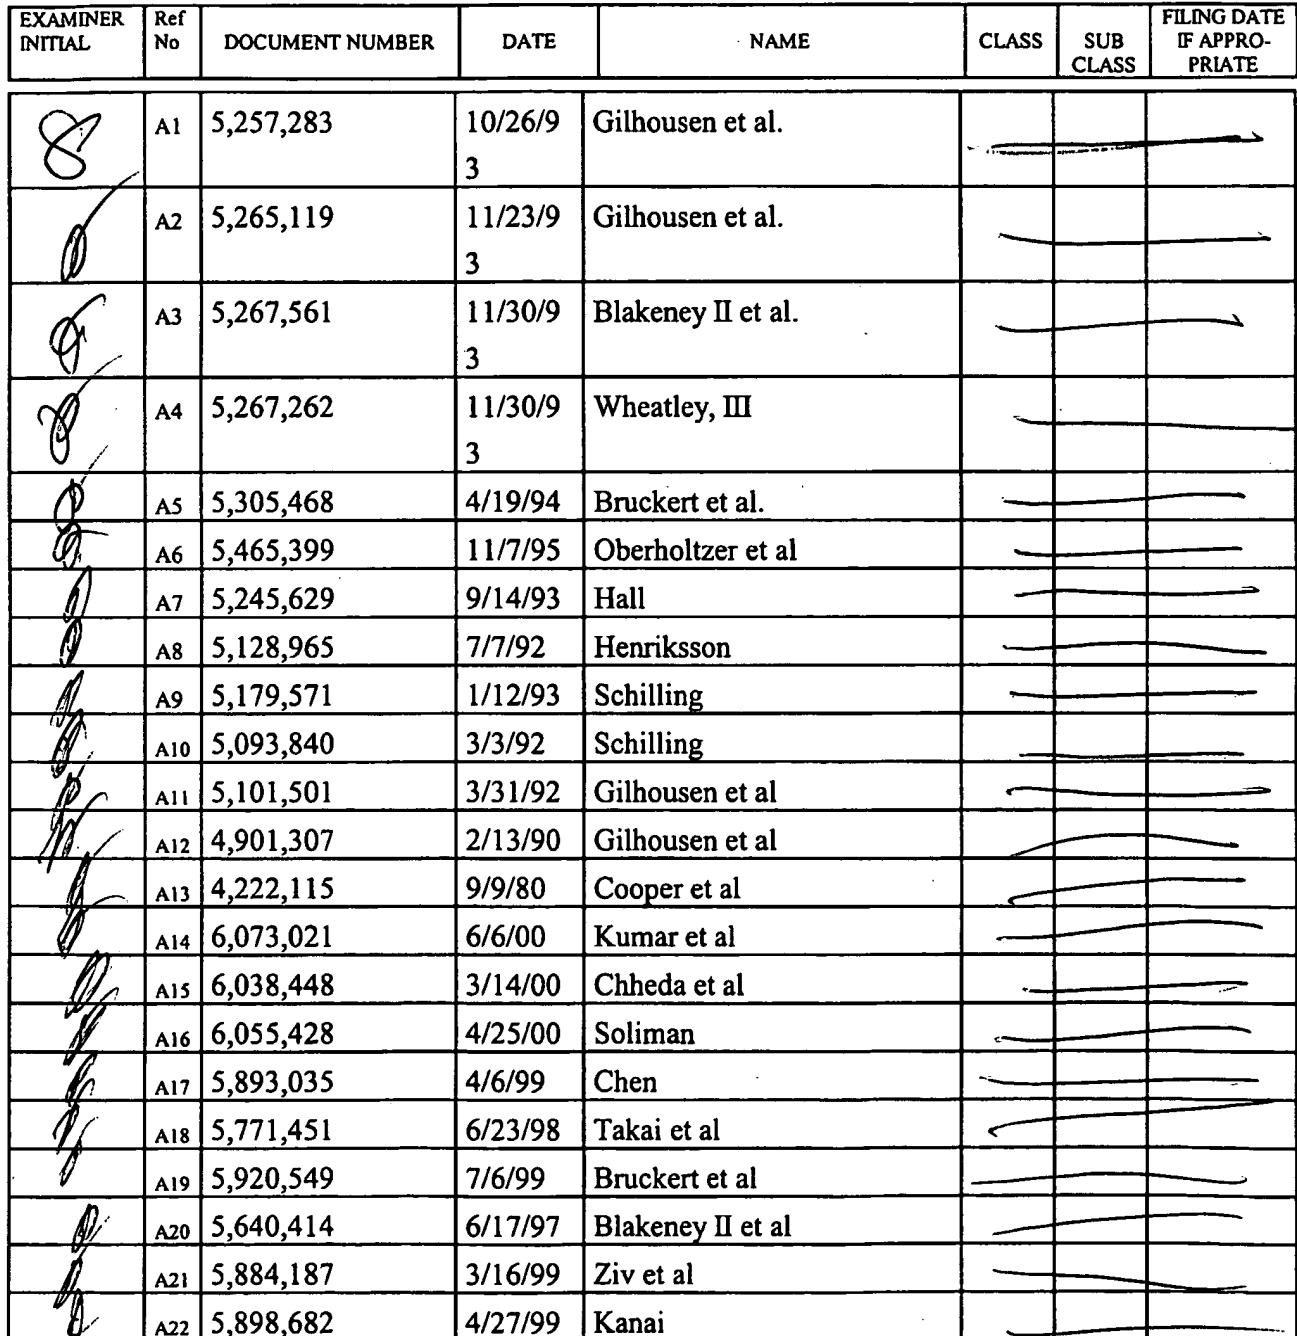 EXAMINER INITIAL Ref No DOCUMENT NUMBER DATE NAME CLASS SUB CLASS FILING DATE IF APPRO- PRIATE
A1 5,257,283 10/26/9 Gilhousen et al.
3
A2 5,265,119 11/23/9 Gilhousen et al.
3
A3 5,267,561 11/30/9 Blakeney II et al.
3
A4 5,267,262 11/30/9 Wheatley, III
3
A5 5,305,468 4/19/94 Bruckert et al.
A6 5,465,399 11/7/95 Oberholtzer et al
A7 5,245,629 9/14/93 Hall
A8 5,128,965 7/7/92 Henriksson
A9 5,179,571 1/12/93 Schilling
A10 5,093,840 3/3/92 Schilling
A11 5,101,501 3/31/92 Gilhousen et al
A12 4,901,307 2/13/90 Gilhousen et al
A13 4,222,115 9/9/80 Cooper et al
A14 6,073,021 6/6/00 Kumar et al
A15 6,038,448 3/14/00 Chheda et al
A16 6,055,428 4/25/00 Soliman
A17 5,893,035 4/6/99 Chen
A18 5,771,451 6/23/98 Takai et al
A19 5,920,549 7/6/99 Bruckert et al
A20 5,640,414 6/17/97 Blakeney II et al
A21 5,884,187 3/16/99 Ziv et al
A22 5,898,682 4/27/99 Kanai